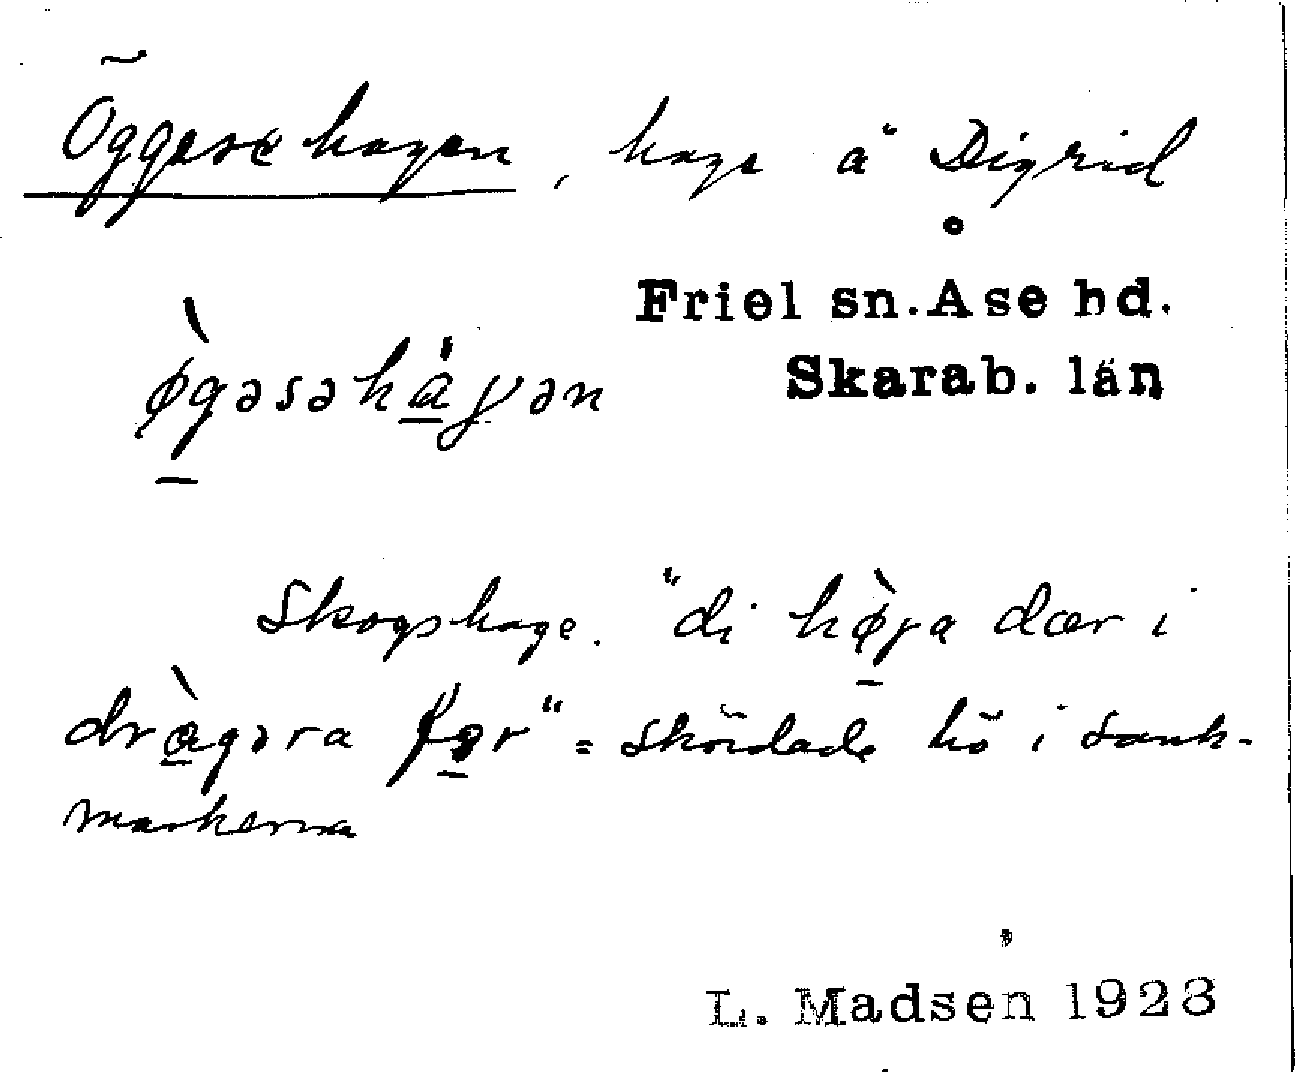 Öggesehagen, hage å Digrid
Friel sn. Åse hd.
Skarab. län
ø̀gəsəhàɣən
Skogshage. "di hø̀ya dær i
dràgəra før" = skördade hö i sank-
markerna
L. Madsen 1928